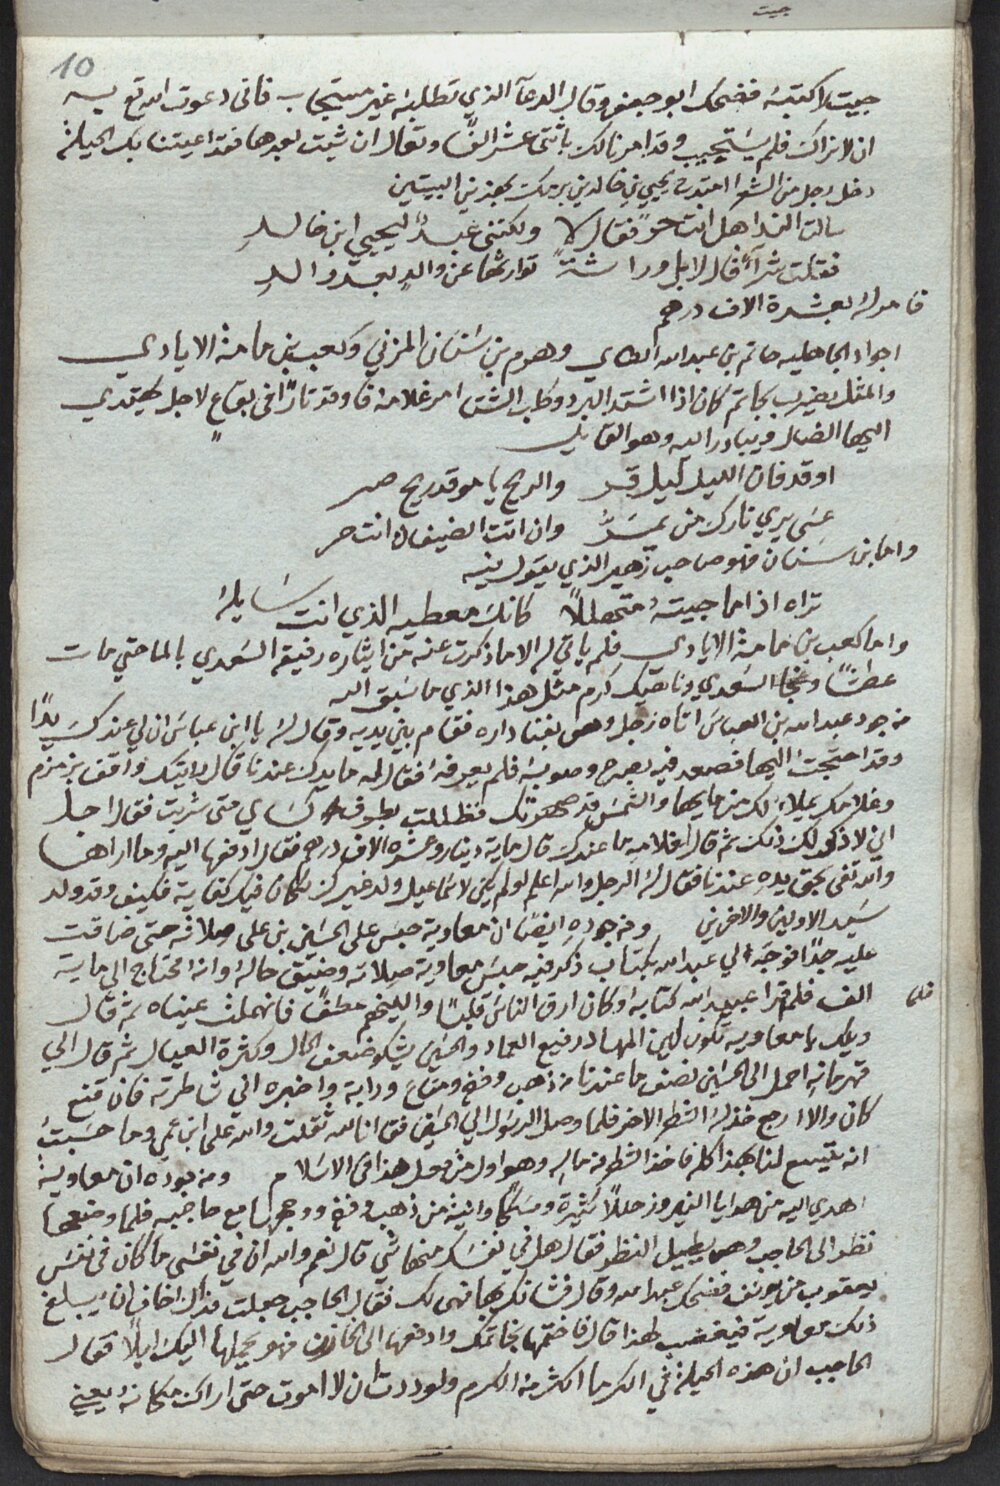 جيت
10
جيت لاكتبه فضحك ابو جعفر وقال الدعآ الذي تطلبه غير مستجاب فاني دعوت الله تع به
ان لا نراك فلم يستجيب وقد امرنا لك باثنى عشر الفًا وتعال ان شيت بعدها فقد اعيتنا بك الحيلة
دخل رجل من الشعرا امتدح يحيي بن خالد بن برمك بهذين البيتين
سالت الندا هل انت حرٌ فقال لا ولكنني عبدٌ ليحيي ابن خالدِ
فقلت شرآءً قال لا بل وراثةً توارثها عن والدٍ بعد والدِ
فامر له بعشرة الاف درهم
اجواد الجاهليه حاتم بن عبدالله الطاي وهرم بن سنان المزني وكعب بن مامة الايادي
والمثل يضرب بحاتم كان اذا اشتد البرد وكلب الشتا امر غلامه فاوقد نارًا في بقاعٍ لاجل يهتدي
اليها الضال ويبادر اليه وهو القايل
اوقد فان الليل ليل قر والريح يا موقد ريح صر
عسى يرى نارك من يمرُّ وان اتت الضيف انت حر
واما بن سنان فهو صاحب زهير الذي يقول فيه
تراه اذا ما جيته متهللاً كانك معطيه الذي انت سايله
واما كعب بن مامة الايادي فلم ياتي له الا ما ذكرت عنه من ايثاره رفيقه السعدي بالما حتي مات
عطشًا ونجا السعدي وناهيك كرم مثل هذا الذي ما سبق اليه
من جود عبدالله بن العباس اتاه رجل وهو بفنا داره فقام بين يديه وقال له يا ابن عباس ان لي عندك يدًا
وقد احتجت اليها فصعد فيه بصره وصوبه فلم يعرفه فقال له ما يدك عندنا قال رايتك واقف بزمزم
وغلامك يملاء لك من مايها والشمس قد صهرتك فظللتك بطرف كساي حتى شربت فقال اجل
اني لاذكر لك ذلك ثم قال لغلامه ما عندك قال ماية دينار وعشرة الاف درهم فقال ادفعها اليه وما اراها
والله تفي بحق يده عندنا فقال له الرجل والله اعلم لو لم يكن لاسماعيل ولد غيرك لكان فيك كفاية فكيف وقد ولد
سيد الاولين والاخرين ومن جوده ايضًا ان معاوية حبس على الحسين بن على صلاته حتى ضاقت
عليه جدًا فوجه الي عبدالله بكتاب ذكر فيه حبس معاوية صلاته وضيق حاله وانه محتاج الي ماية
الف فلما قرا عبدالله كتابه وكان ارق الناس قلبًا والينهم عطفًا فانهملت عيناه ثم قال
فلما
ويلك يا معاويه تكون لين المهاد رفيع العماد والحسين يشكو ضعف الحال وكثرة العيال ثم قال الي
قهرمانه احمل الى الحسين نصف ما عندنا من ذهب وفضه ومتاع ودابة واخبره اني شاطرته فان قنع
كان والا ارجع خذ له الشطر الاخر فلما وصل الرسول الي الحسين فق انا لله ثقلت والله على ابن عمي وما حسبتُ
انه يتسع لنا بهذا كله فاخذ الشطر من ماله وهو اول من فعل هذا في الاسلام ومن جوده ان معاوية
اهدي اليه من هدايا النيروز حللاً كثيرة ومسكًا وانية من ذهب وفضه ووجهها مع حاجبه فلما وضعها
نظر الى الحاجب وهو يطيل النظر فقال هل في نفسك منها شي قال نعم والله ان في نفسي ما كان في نفس
يعقوب من يوسف فضحك عبدالله وقال فشانك بها فهي لك فقال الحاجب جعلت فداك اخاف ان يبلغ
ذلك معاوية فيغضب لهذا قال فاختمها بخاتمك وادفعها الى الخازن فهو يحملها اليك ليلاً فقال
الحاجب ان هذه الحيلة في الكرم اكثر من الكرم ولوددت ان لا اموت حتى اراك مكانه يعني